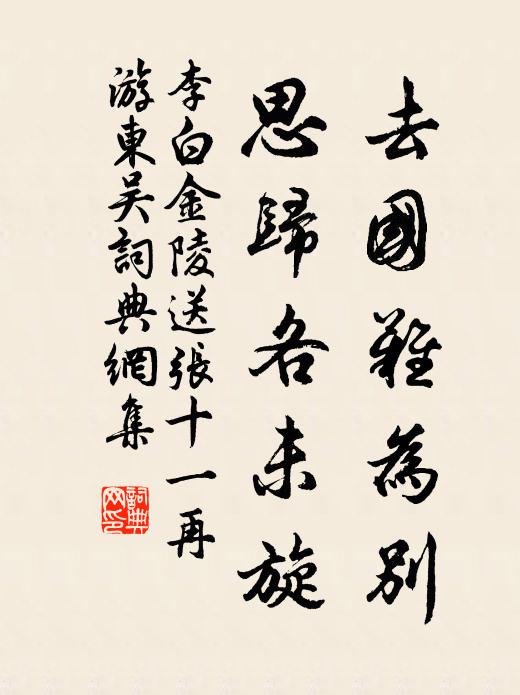 去國難為別
思歸各未旋
李白金陵送張十一再
游東吳詞典網集
詞典網印